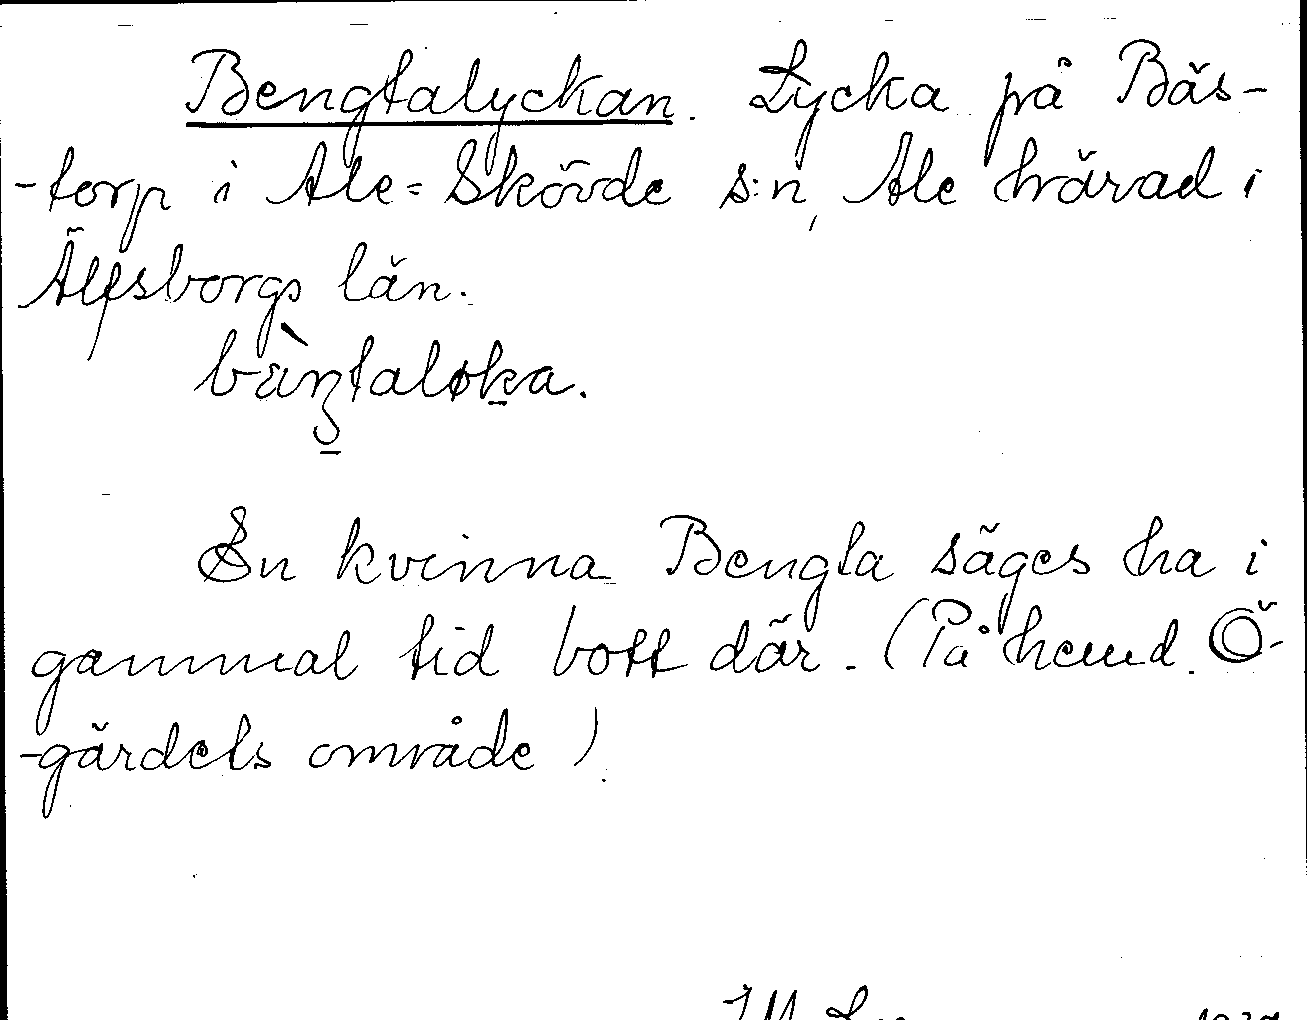 Bengtalyckan. Lycka på Bäs-
-torp i Ale=Skövde s:n, Ale härad i
Älfsborgs län.
En kvinna Bengta säges ha i
gammal tid bott där. (På hemd. Ö-
-gärdets område)